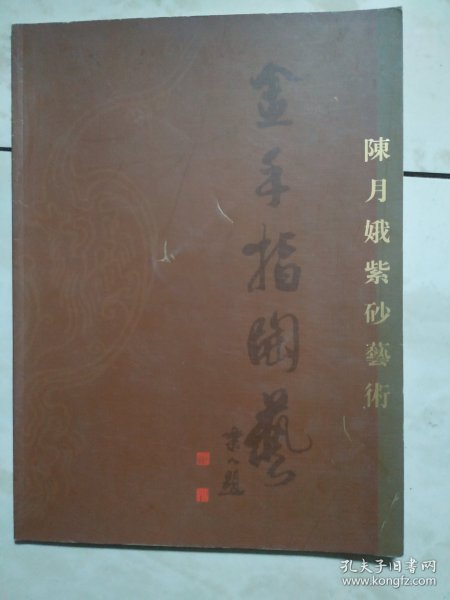 陳月娥紫砂藝術
金手指陶藝
孔夫子旧书网
www.kongfz.com